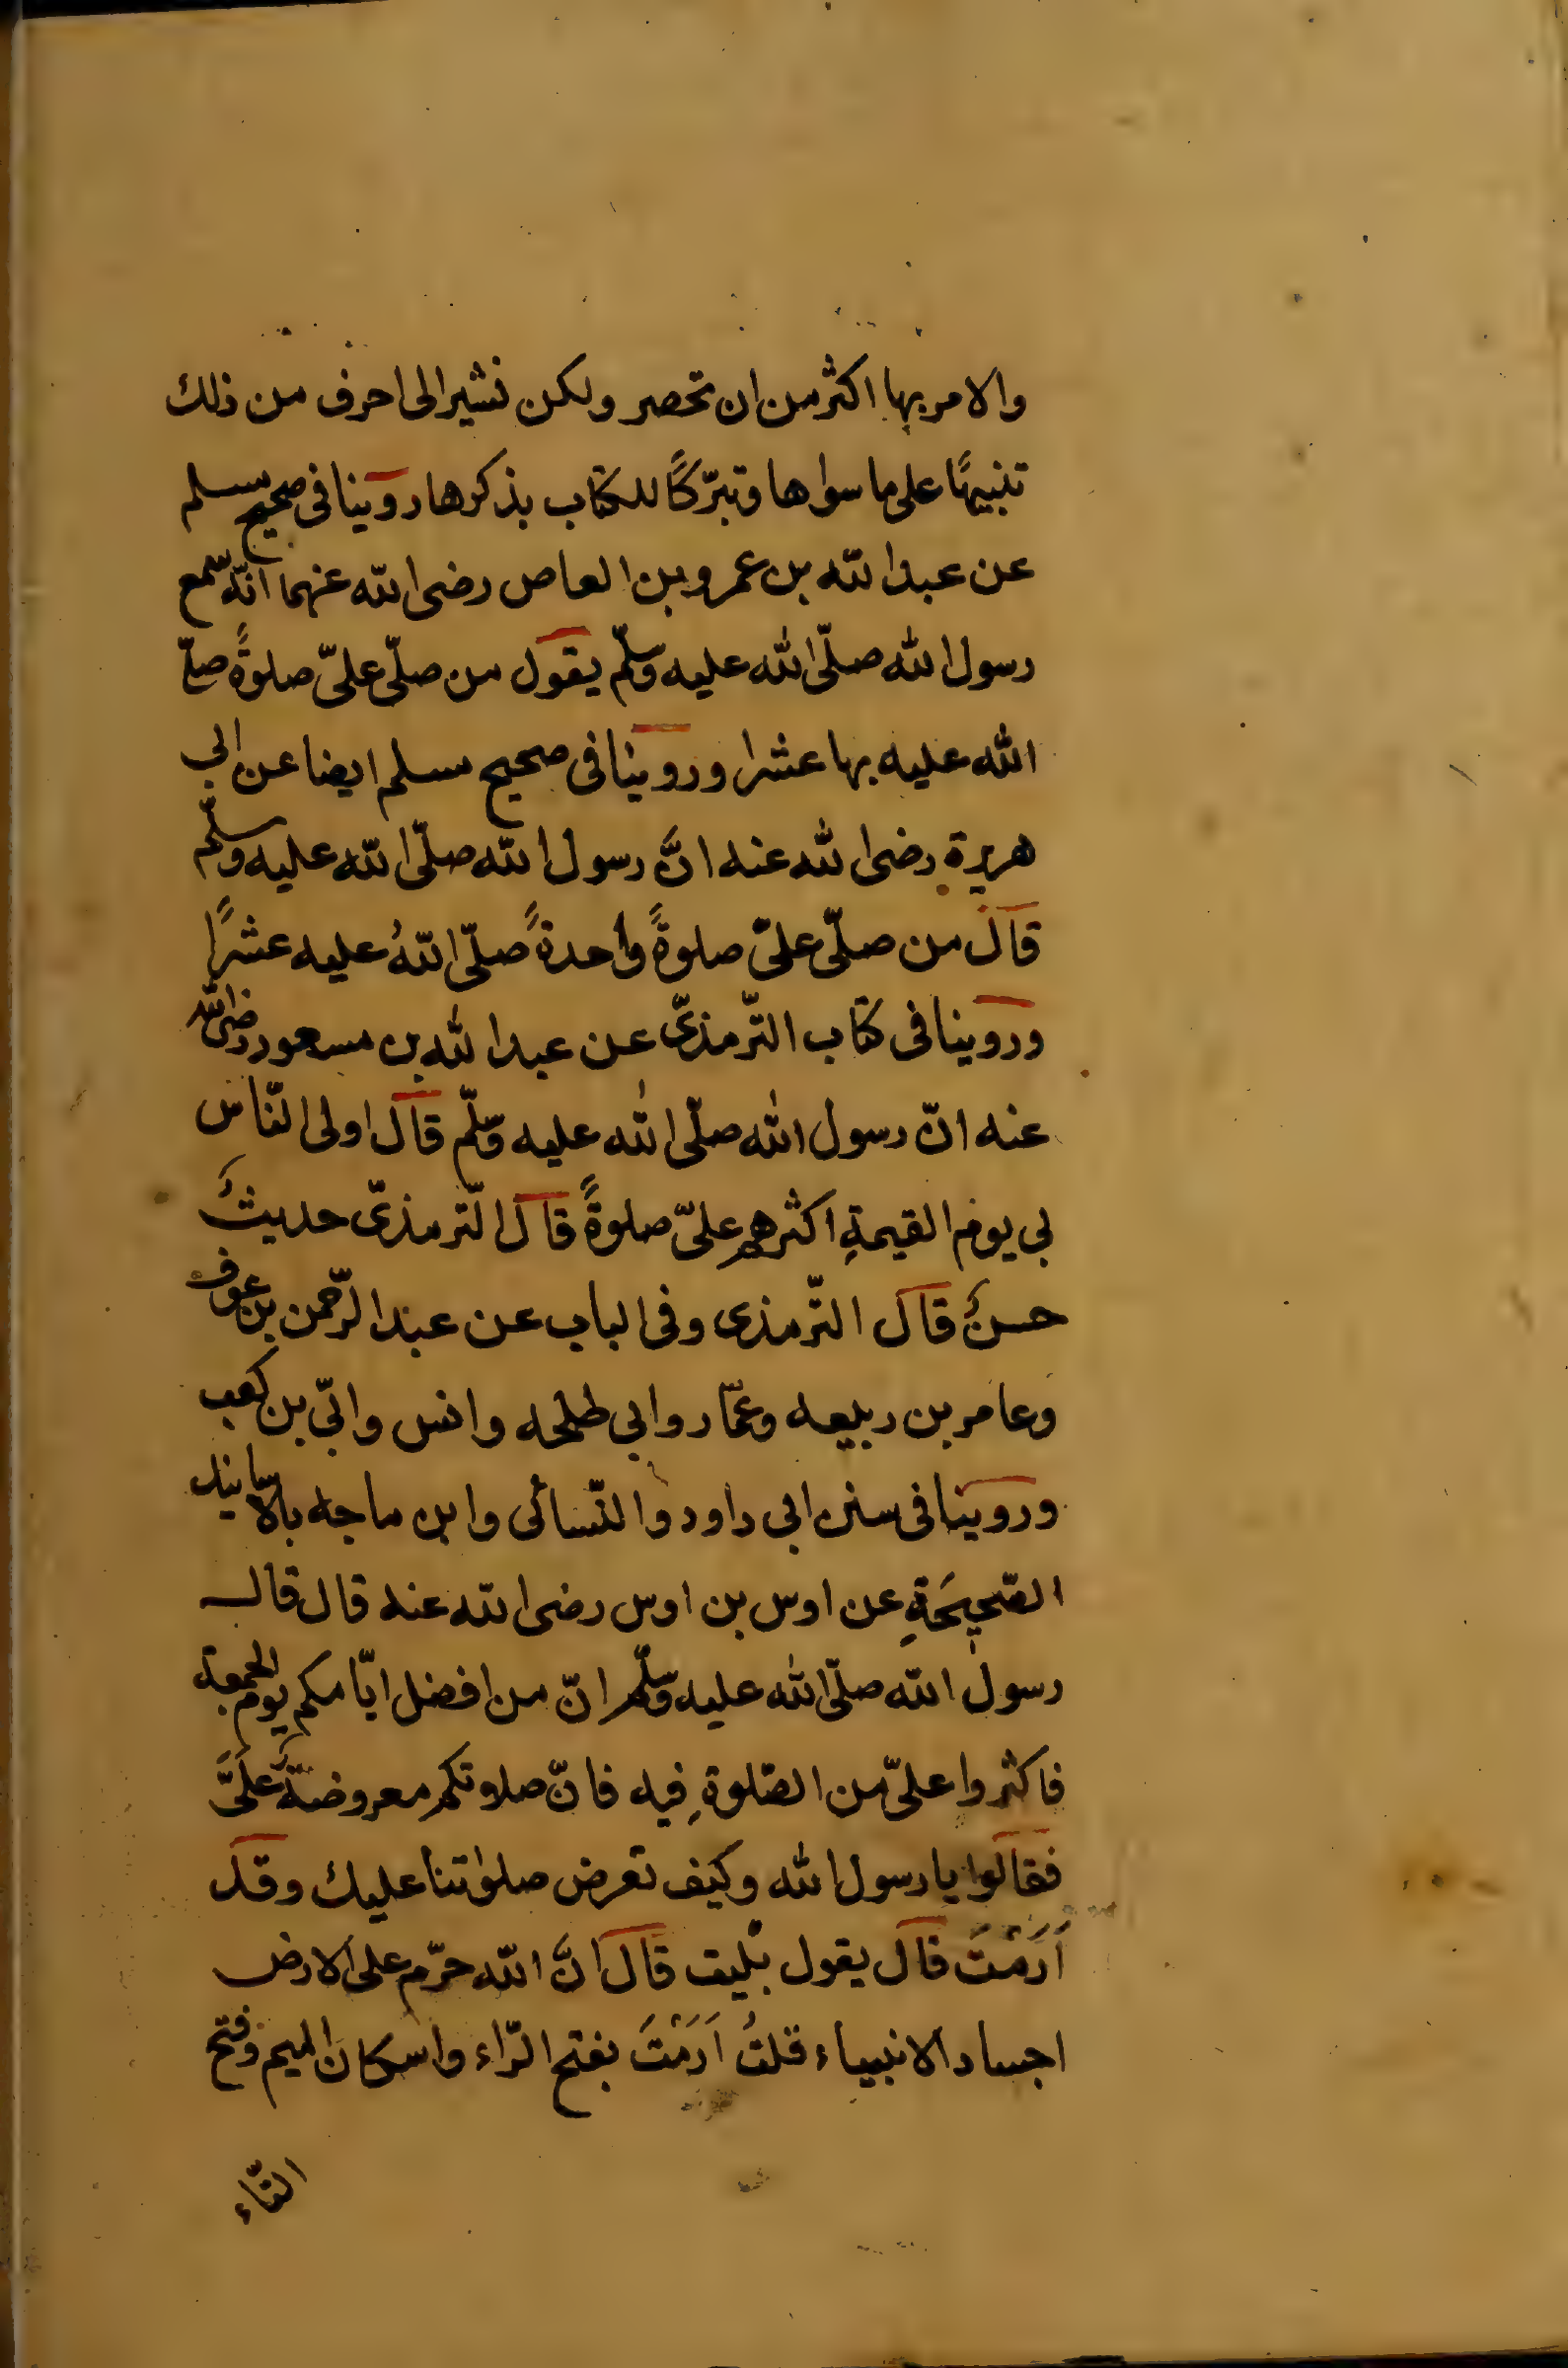 والامر بها اكثر من ان تحصر ولكن نشير الى احرف من ذلك
تنبيهًا على ما سواها وتبرّكًا للكتاب بذكرها روينا فى صحيح مسلم
عن عبد الله بن عمرو بن العاص رضى الله عنهما انّه سمع
رسول الله صلّى الله عليه وسلّم يقول من صلّى علىّ صلوةً صلّى
الله عليه بها عشرا وروينا فى صحيح مسلم ايضا عن ابى
هريرة رضى الله عنه انَّ رسول الله صلّى الله عليه وسلّم
قال من صلّى علىّ صلوةً واحدةً صلّى اللهُ عليه عشرًا
وروينا فى كتاب التّرمذىّ عن عبد الله بن مسعود رضى الله
عنه انّ رسول الله صلّى الله عليه وسلّم قال اولى النّاس
بى يوم القيمةِ اكثرهم علىّ صلوةً قال التّرمذىّ حديثٌ
حسنٌ قال التّرمذى وفى الباب عن عبد الرّحمن بن عوف
وعامر بن ربيعه وعمّار وابى طلحه وانس وابىّ بن كعب
وروينا فى سنن ابى داود والنّسائى وابن ماجه بالاسانيد
الصّحيحَةِ عن اوس بن اوس رضى الله عنه قال قال
رسول الله صلّى الله عليه وسلّم انّ من افضل ايّامكم يوم الجمعة
فاكثروا علىّ من الصّلوةِ فيه فانّ صلوتكم معروضةٌ علَىَّ
فقالوا يا رسول الله وكيف تعرض صلواتنا عليك وقد
أَرَمْتَ قال يقول بُليت قال انَّ الله حرّم على الارض
اجساد الانبياء قلتُ اَرَمْتَ بفتح الرّاء واسكان الميم وفتح
التّاء